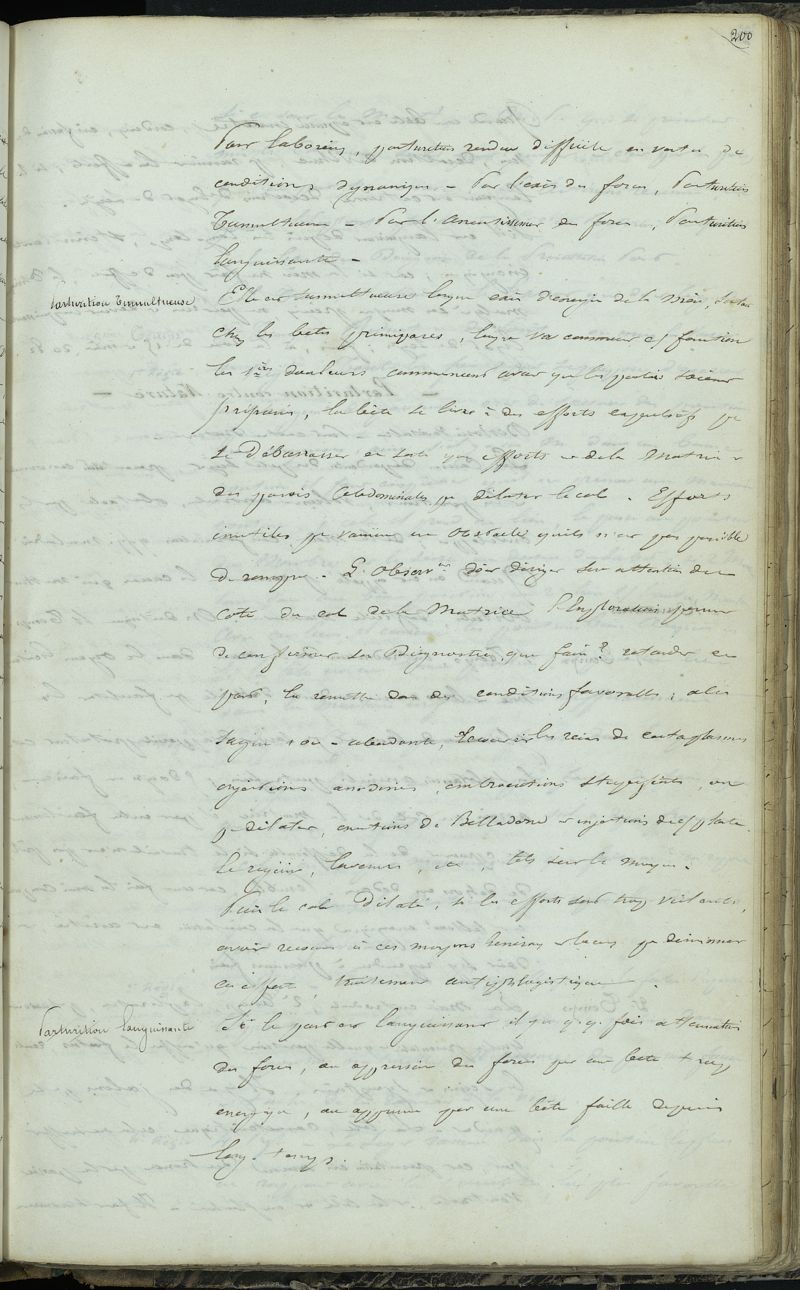 200
Part laborieux, parturition rendue difficile en vertu de
conditions dynamiques - Par l'excès des forces, Parturition
Tumultueuse - Par l'amoindrissement des forces, Parturition
languissante -
Parturition Tumultueuse
Elle est tumultueuse lorsque excès d'énergie de la mère, surtout
chez les bêtes primipares, lorsque va commencer cette fonction
les 1ères douleurs commencent avant que les parties soient
préparées, la bête se livre à des efforts expulsifs pr
se débarrasser en sorte que efforts de la Matrice &
des parois abdominales pr dilater le col. Efforts
inutiles pr vaincre un obstacle qu'il n'est pas possible
de rompre. L'observ doit diriger son attention du
côté du col de la Matrice l'Exploration permet
de confirmer son Diagnostic, que faire? retarder ce
part, la remettre dans des conditions favorables, alors
saignée abondante, recouvrir les reins de cataplasmes
injections anodines, embrocations stupéfiantes, ou
pr dilater, onctions de Belladone & injections de
le régime, lavements, tels sont les moyens.
Puis le col dilaté, si les efforts sont trop violents,
avoir recours à ces moyens généraux & locaux pr diminuer
ces efforts, traitement antiphlogistique.
Parturition languissante
Si le part est languissant il y a qq. fois atténuation
des forces, ou oppression des forces par une bête trop
énergique, ou par une bête faible depuis
long-temps.